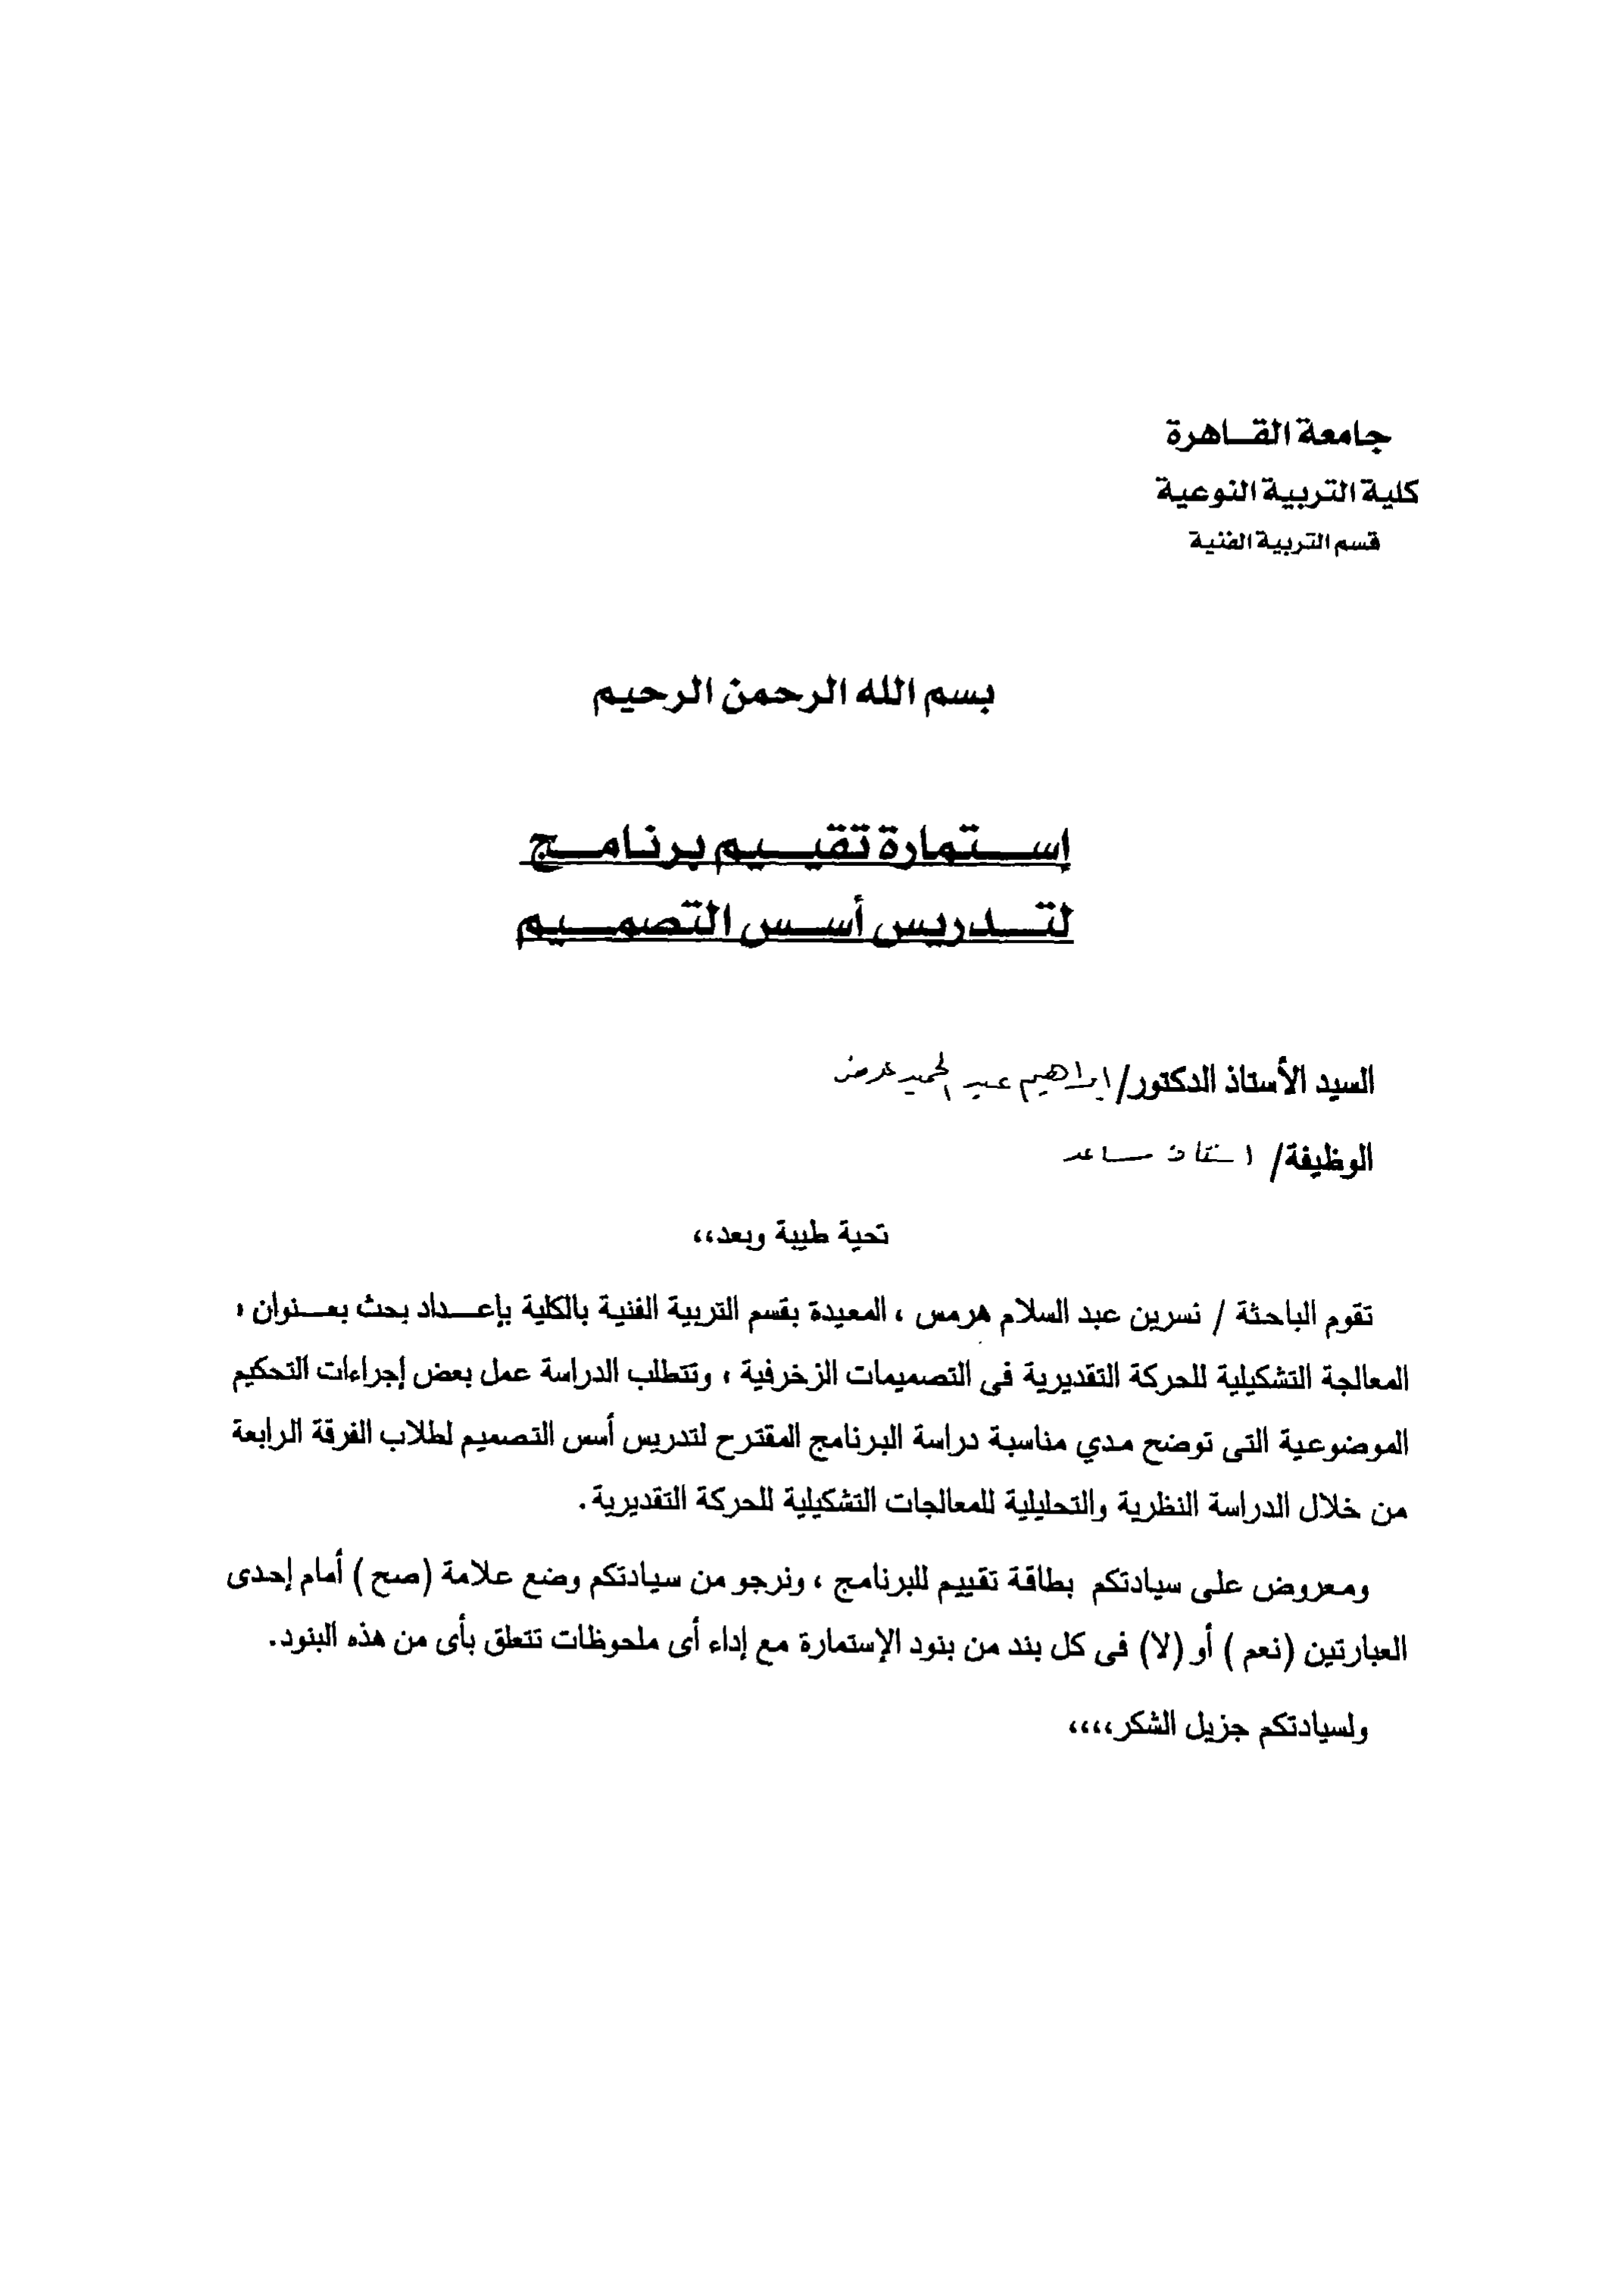 جامعة القاهرة
كلية التربية النوعية
قسم التربية الفنية
بسم الله الرحمن الرحيم
إستمارة تقييم برنامج
لتدريس أسس التصميم
السيد الأستاذ الدكتور/ ابراهيم عبد الحميد عوض
الوظيفة/ استاذ مساعد
تحية طيبة وبعد،،
تقوم الباحثة / نسرين عبد السلام هرمس ، المعيدة بقسم التربية الفنية بالكلية بإعداد بحث بعنوان ،
المعالجة التشكيلية للحركة التقديرية فى التصميمات الزخرفية ، وتتطلب الدراسة عمل بعض إجراءات التحكيم
الموضوعية التى توضح مدي مناسبة دراسة البرنامج المقترح لتدريس أسس التصميم لطلاب الفرقة الرابعة
من خلال الدراسة النظرية والتحليلية للمعالجات التشكيلية للحركة التقديرية .
ومعروض على سيادتكم بطاقة تقييم للبرنامج ، ونرجو من سيادتكم وضع علامة (صح ) أمام إحدى
العبارتين (نعم ) أو (لا) فى كل بند من بنود الإستمارة مع إداء أى ملحوظات تتعلق بأى من هذه البنود.
ولسيادتكم جزيل الشكر،،،،